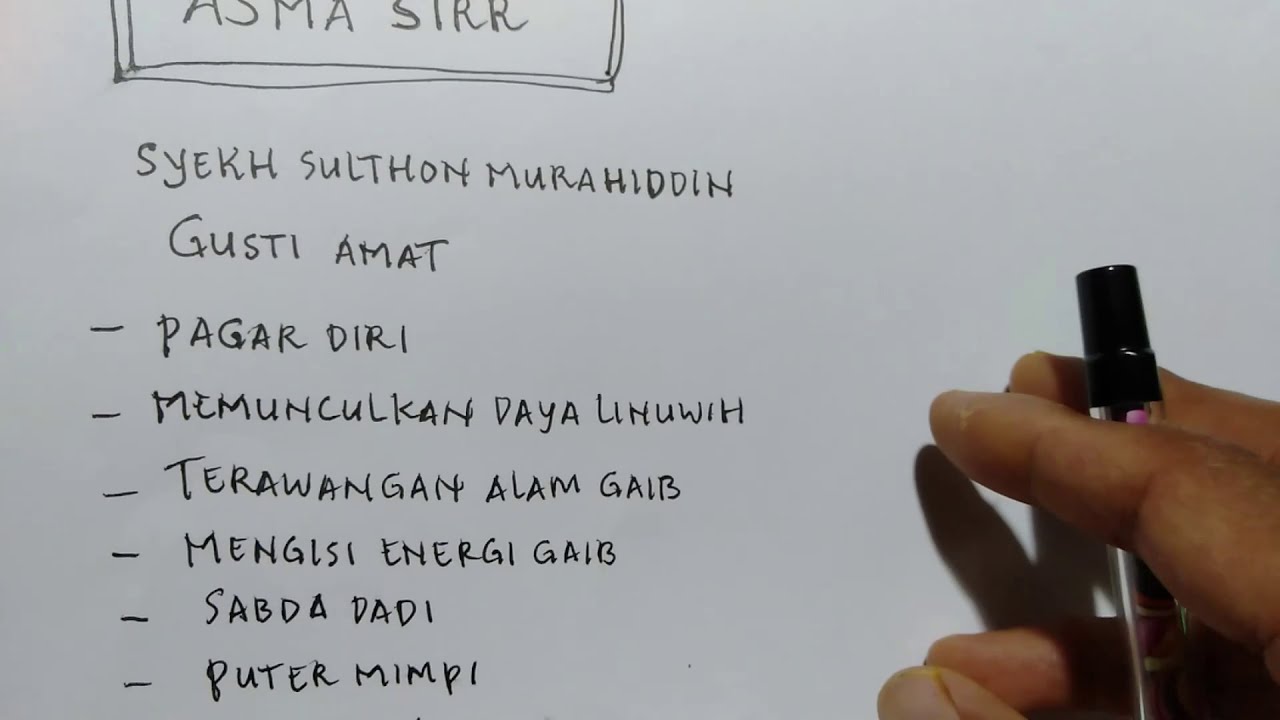 ASMA SIRR
SYEKH SULTHON MURAHIDDIN
GUSTI AMAT
- PAGAR DIRI
- MEMUNCULKAN DAYA LINUWIH
- TERAWANGAN ALAM GAIB
- MENGISI ENERGI GAIB
- SABDA DADI
- PUTER MIMPI